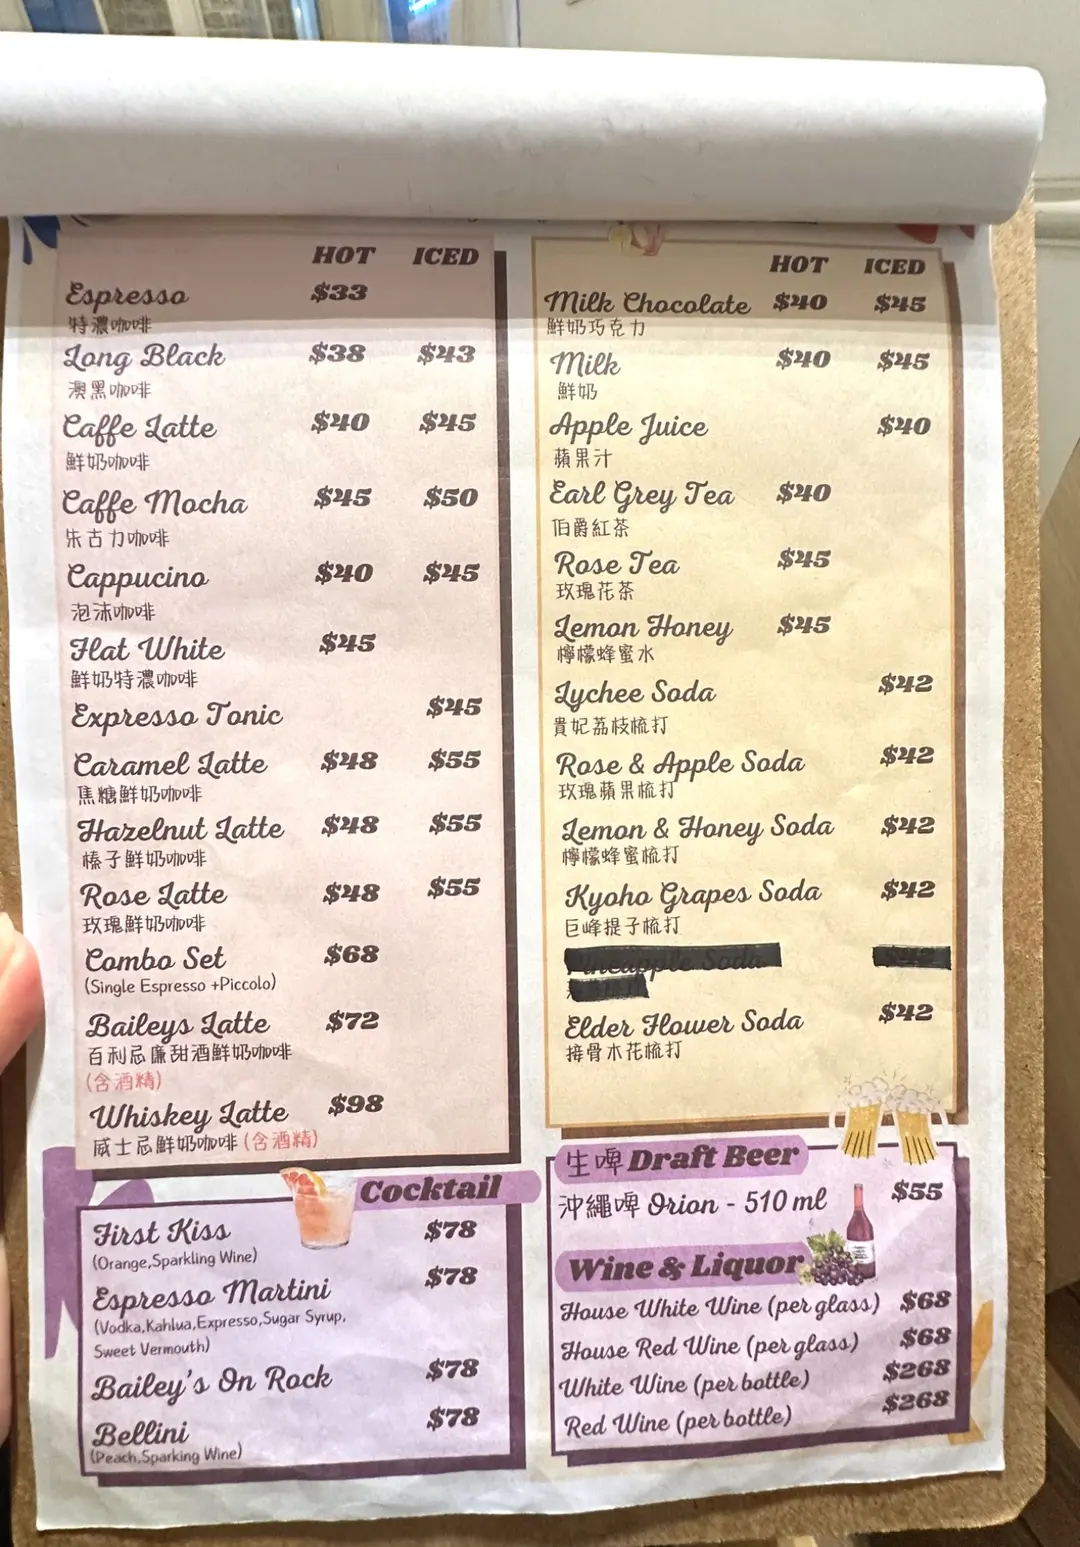 HOT ICED
Espresso $33
特濃咖啡
Long Black $38 $43
澳黑咖啡
Caffe Latte $40 $45
鮮奶咖啡
Caffe Mocha $45 $50
朱古力咖啡
Cappucino $40 $45
泡沫咖啡
Flat White $45
鮮奶特濃咖啡
Expresso Tonic $45
Caramel Latte $48 $55
焦糖鮮奶咖啡
Hazelnut Latte $48 $55
榛子鮮奶咖啡
Rose Latte $48 $55
玫瑰鮮奶咖啡
Combo Set $68
(Single Espresso +Piccolo)
Baileys Latte $72
百利忌廉甜酒鮮奶咖啡
(含酒精)
Whiskey Latte $98
威士忌鮮奶咖啡 (含酒精)
Cocktail
First Kiss $78
(Orange,Sparkling Wine)
Espresso Martini $78
(Vodka,Kahlua,Expresso,Sugar Syrup,
Sweet Vermouth)
Bailey's On Rock $78
Bellini $78
(Peach,Sparking Wine)
HOT ICED
Milk Chocolate $40 $45
鮮奶巧克力
Milk $40 $45
鮮奶
Apple Juice $40
蘋果汁
Earl Grey Tea $40
伯爵紅茶
Rose Tea $45
玫瑰花茶
Lemon Honey $45
檸檬蜂蜜水
Lychee Soda $42
貴妃荔枝梳打
Rose & Apple Soda $42
玫瑰蘋果梳打
Lemon & Honey Soda $42
檸檬蜂蜜梳打
Kyoho Grapes Soda $42
巨峰提子梳打
Pineapple Soda $42
Elder Flower Soda $42
接骨木花梳打
生啤 Draft Beer
沖繩啤 Orion - 510 ml $55
Wine & Liquor
House White Wine (per glass) $68
House Red Wine (per glass) $68
White Wine (per bottle) $268
Red Wine (per bottle) $268